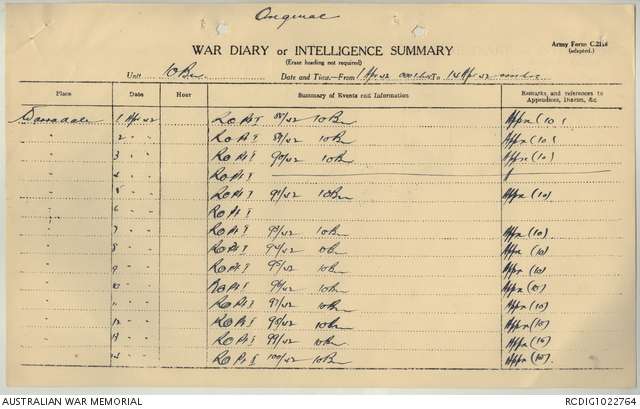 Original
WAR DIARY or INTELLIGENCE SUMMARY
(Erase heading not required)
Army Form C.2118
(adapted.)
Unit 10 Bn Date and Time—From 1 Apr 42 0001 hrs To 14 Apr 42
Place Date Hour Summary of Events and Information Remarks and references to Appendices, Diaries, &c
1 Apr 42 RO Pt I 88/42 10 Bn Appx (10)
" 2 " " RO Pt I 89/42 10 Bn Appx (10)
" 3 " " RO Pt I 90/42 10 Bn Appx (10)
" 4 " " RO Pt I
" 5 " " RO Pt I 91/42 10 Bn Appx (10)
" 6 " " RO Pt I
" 7 " " RO Pt I 93/42 10 Bn Appx (10)
" 8 " " RO Pt I 94/42 10 Bn Appx (10)
" 9 " " RO Pt I 95/42 10 Bn Appx (10)
" 10 " " RO Pt I 96/42 10 Bn Appx (10)
" 11 " " RO Pt I 97/42 10 Bn Appx (10)
" 12 " " RO Pt I 98/42 10 Bn Appx (10)
" 13 " " RO Pt I 99/42 10 Bn Appx (10)
" 14 " " RO Pt I 100/42 10 Bn Appx (10)
AUSTRALIAN WAR MEMORIAL RCDIG1022764